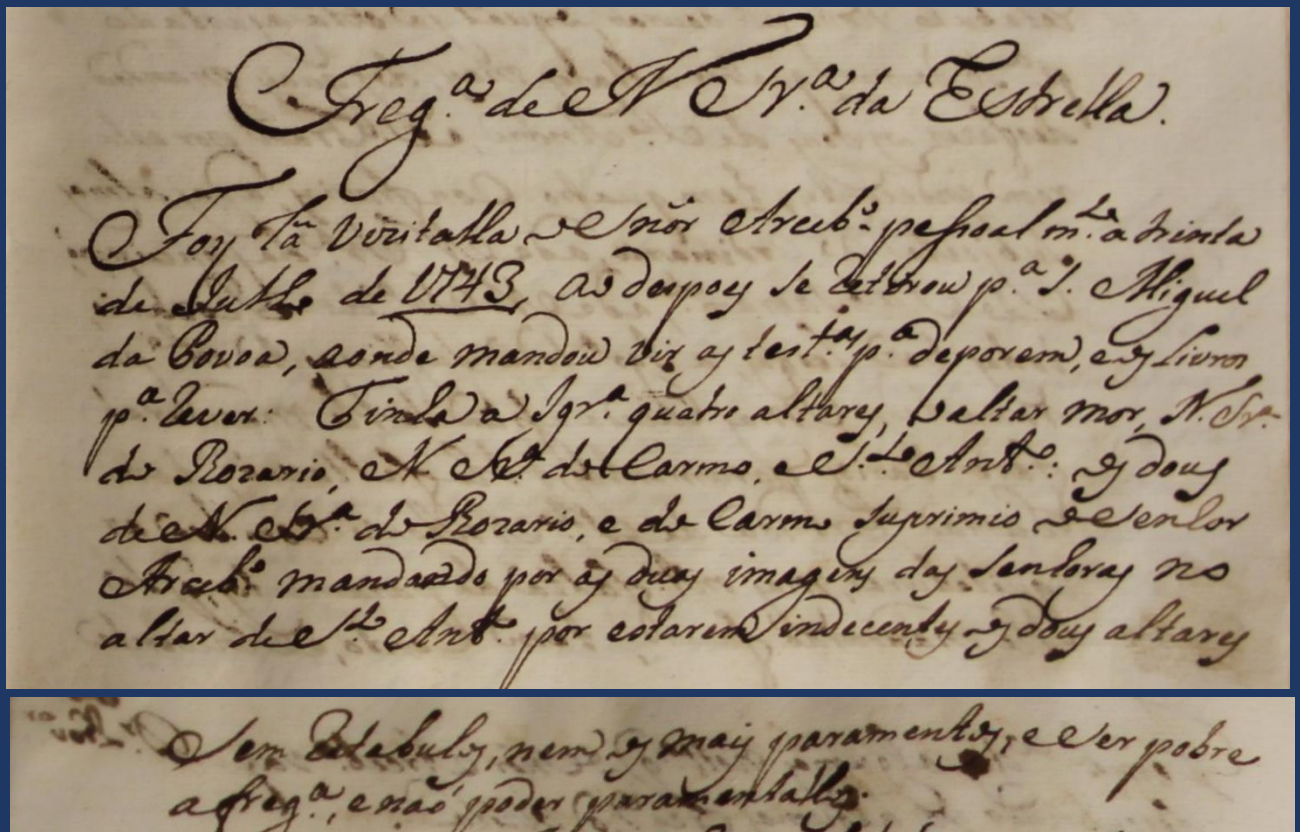 Freg.ª de N Sr.ª da Estrella.
Foy esta vizitada o Snõr Arceb.º pessoal m.te a trinta
de Julho de 1743, e depoes se retirou p.ª S. Miguel
da Povoa, aonde mandou vir as test.as p.ª deporem, e os Livros
p.ª ver. Tinha a Igr.ª quatro altares, o altar mor, N. Sr.ª
do Rozario, N Sr.ª do Carmo, e S.to Ant.º: os dous
de N. Sr.ª do Rozario, e do Carmo suprimio o Senhor
Arceb.º mandando por as duas imagens das senhoras no
altar de S.to Ant.º por estarem indecentes os dous altares
sem retabulos, nem os mais paramentos, e ser pobre
a freg.ª, e não poder paramentallos.